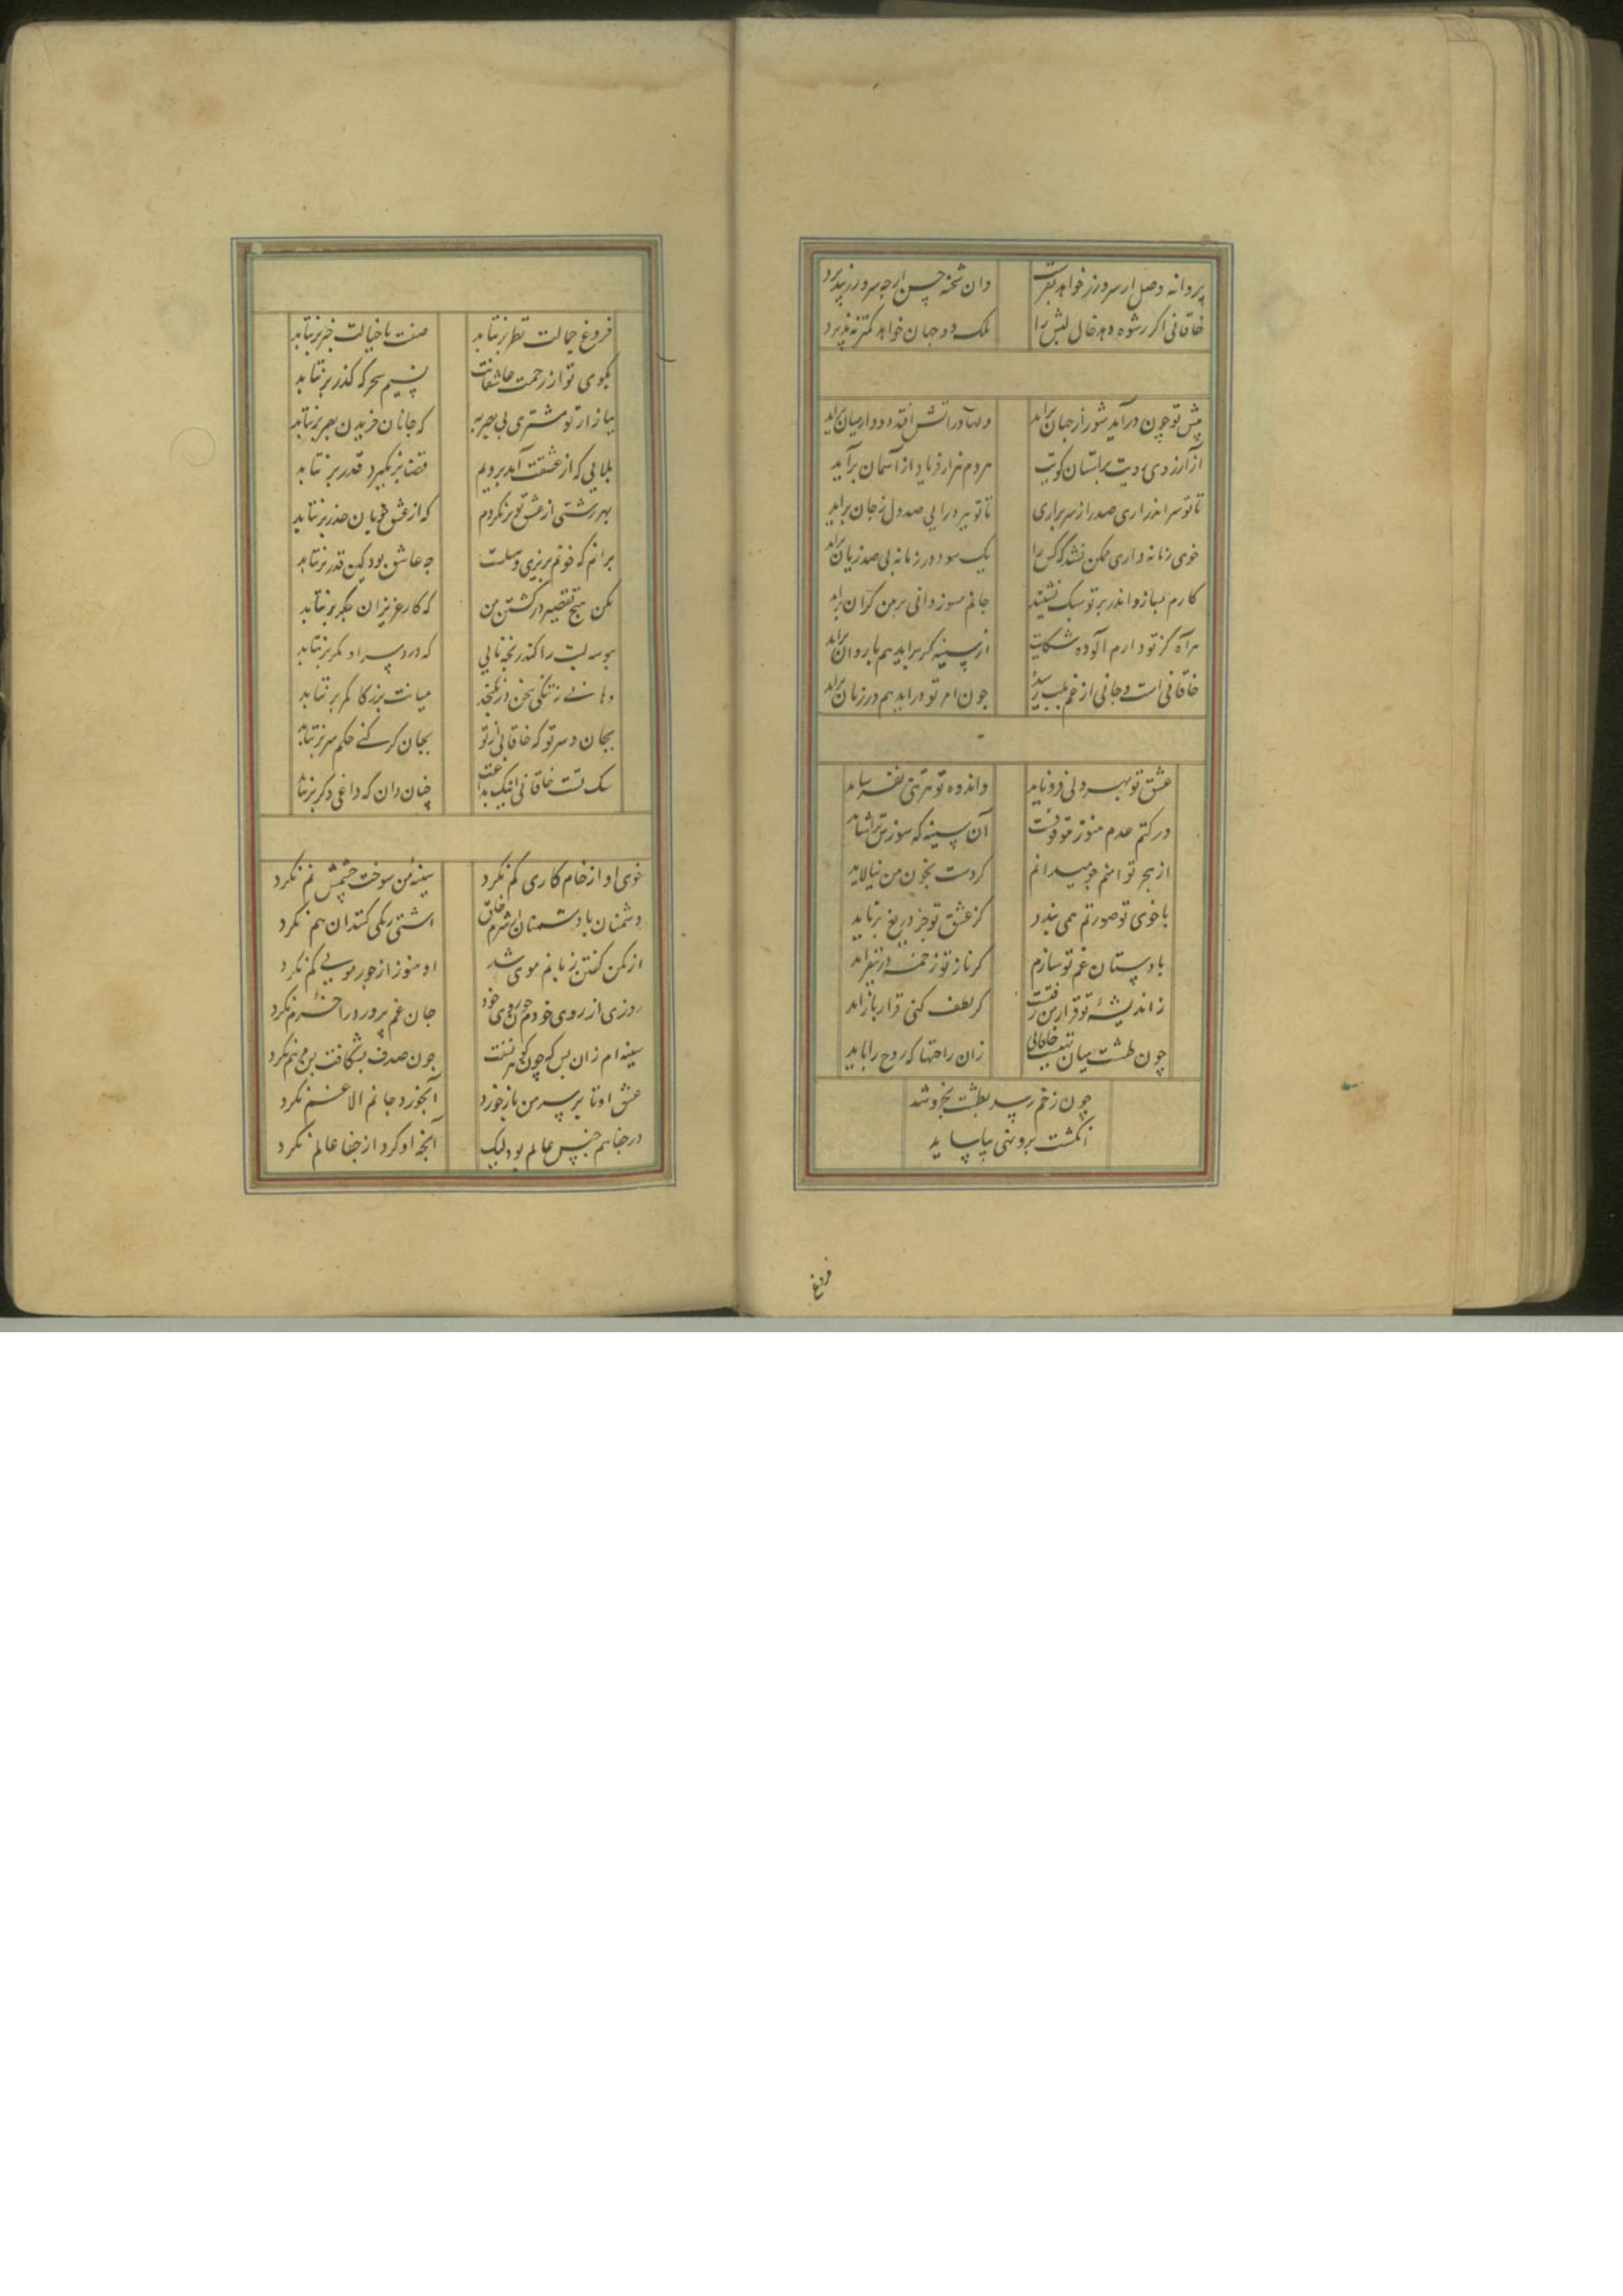 پروانه وصل ار سر و زر خواهد بفرست دان شحنه حسن ارچه سر و زر نپذیرد
خاقانی اگر رشوه دهد خال لبش را ملک دو جهان خواهد کمتر نپذیرد
پیش تو چون درآید شور از جهان براید دلها در آتش افتد دود از میان براید
از آرزوی رویت بر استان کویت هر دم هزار فریاد از آسمان برآید
تا تو سر اندر اری صد راز سر براری تا تو ببر درایی صد دل ز جان براید
خوی زمانه داری ممکن نشد که کس را یک سود در زمانه بی صد زیان براید
کارم بسازد اندر بر تو سبک نشیند جانم مسوز دانی بر من گران براید
هر آه کز تو دارم آلوده شکایت از سینه گر براید هم با روان براید
خاقانی است و جانی از غم بلب رسیده چون امر تو دراید هم در زمان براید
عشق تو بهر دلی فرو ناید واندوه تو هر تنی نفرساید
در کتم عدم هنوز موقوفست آن سینه که سوزش ترا شاید
از هجر تو ایمنم چو میدانم کو دست بخون من نیالاید
با خوی تو صورتم همی بندد کز عشق تو جز دریغ برناید
با دستان غم تو سازم گر ناز تو زخمه درنیفزاید
ز اندیشه تو قرار من رفتست گر لطف کنی قرار بازاید
چون طشت میان تهیست خاقانی زان راحتها که روح را باید
چون زخم رسد بطشت بخروشد
انگشت برو نهی بیاساید
فروغ
فروغ جمالت نظر برنتابد صفت با خیالت خبر برنتابد
بکوی تو از زحمت عاشقانت نسیم سحر که گذر برنتابد
ببازار تو مشتری بی بصر به که جانان خریدن بصر برنتابد
بلایی که از عشقت آید برویم قضا برنگیرد قدر برنتابد
بهر زشتی از عشق تو برنگردم که از عشق خوبان حذر برنتابد
برانم که خونم بریزی و سهلست چه عاشق بود کین قدر برنتابد
مکن هیچ تقصیر در کشتن من که کار عزیزان جگر برنتابد
ببوسه لبت را کند رنجه نایی که درد سر او مگر برنتابد
دهانت ز تنگی سخن درنگنجد میانت بزر کامر برنتابد
بجان و سر تو که خاقانی از تو بجان گر کنی حکم سر برنتابد
سگ تست خاقانی اینک بداغت چنان دان که داغی دگر برنتابد
خوی او از خام کاری کم نکرد سینه من سوخت چشمش نم نکرد
دشمنان با دشمنان از شرم خلق اشتی رنگی کنند ان هم نکرد
از مکن گفتن زبانم موی شد او هنوز از جور مویی کم نکرد
روزی از روی خودم چون روی خود جان غم پرورده را خرم نکرد
سینه ام زان پس که چون گوهر بسفت چون صدف بشکافت پس مرهم نکرد
عشق او تا بر سر من باز خورد آبخورد جانم الا غم نکرد
در جفا هم جنس عالم بود لیک آنچه او کرد از جفا عالم نکرد